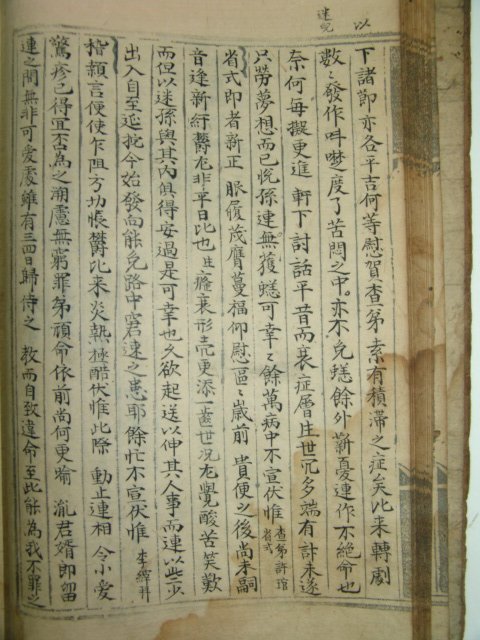 以
下諸節亦各平吉何等慰賀査弟素有積滯之症矣比來轉劇
數〻發作叫楚度了苦悶之中亦不免蟋餘外薪憂連作不絶命也
奈何每擬更進 軒下討話平昔而衰症層生世冗多端有計未遂
只勞夢想而已悅孫連無獲蟋可幸〻餘萬病中不宣伏惟 查弟許琯
省式即者新正 服履茂膺蔓福仰慰區〻歲前 貴便之後尚未嗣
音逢新紆欝尤非平日比也生癃衰形壳更添一齒世況尤覺酸苦笑歎
而但以迷孫與其內俱得安過是可幸也久欲起送以伸其人事而連以些少
出入自至延拕今始發向能免路中窘速之患耶餘忙不宣伏惟 李繹拜
稽顙言便使乍阻方切悵欝比來炎熱極酷伏惟此際 動止連相 令小愛
驚疹已得冝否為之溯慮無窮罪弟頑命依前尚何更喩 胤君婿即留
連之間無非可愛處雖有三四日歸侍之 敎而自致違命至此能為我不罪之